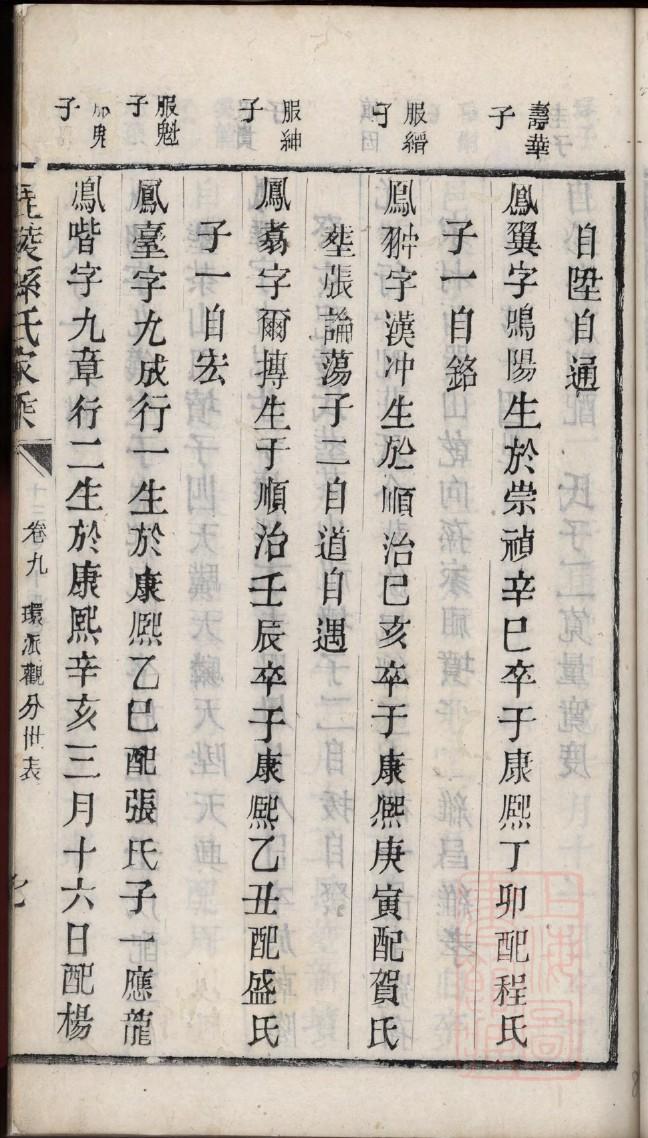 自陞自通
壽華子
鳳翼字鳴陽生於崇禎辛巳卒于康熙丁卯配程氏
子一自銘
服縉子
鳳翀字漢冲生於順治己亥卒于康熙庚寅配賀氏
塟張論蕩子二自道自遇
服紳子
鳳翥字爾摶生于順治壬辰卒于康熙乙丑配盛氏
子一自宏
服魁子
鳳臺字九成行一生於康熙乙巳配張氏子一應龍
子
鳳喈字九章行二生於康熙辛亥三月十六日配楊
毘陵孫氏家乘
卷九
環派觀分世表